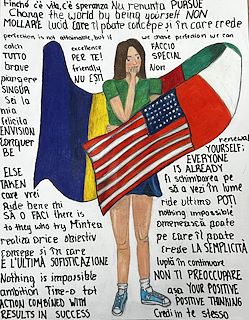 Finché c'è vita, c'è speranza Nu renunța PURSUE
Change the world by being yourself NON
MOLLARE lucid care îl poate concepe și în care crede
perfection is not attainable, but if we chase perfection we can
catch excellence FACCIO
TUTTO PER TE! SPECIAL
brave friendly Non
piangere NU EȘTI
SINGUR
Sei la
mia
felicità
ENVISION renewal
CONQUER YOURSELF;
BE EVERYONE
ELSE IS ALREADY
TAKEN fii schimbarea pe
care vrei să o vezi în lume
Râde bene chi ride ultimo POȚI
SĂ O FACI there is nothing impossible
to they who try Mintea omenească poate
realiza orice obiectiv pe care îl poate
consegue și în care crede LA SIMPLICITÀ
È L'ULTIMA SOFISTICAZIONE luptă în continuare
Nothing is impossible NON TI PREOCCUPARE
ambition Tine-o tot așa POSITIVE
ACTION COMBINED WITH POSITIVE THINKING
RESULTS IN SUCCESS Credi in te stesso